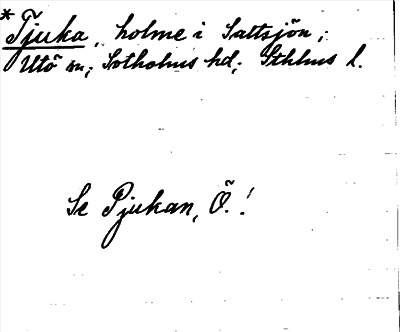 * Tjuka, holme i Saltsjön;
Utö sn; Sotholms hd; Sthlms l.
Se Pjukan, Ö.!